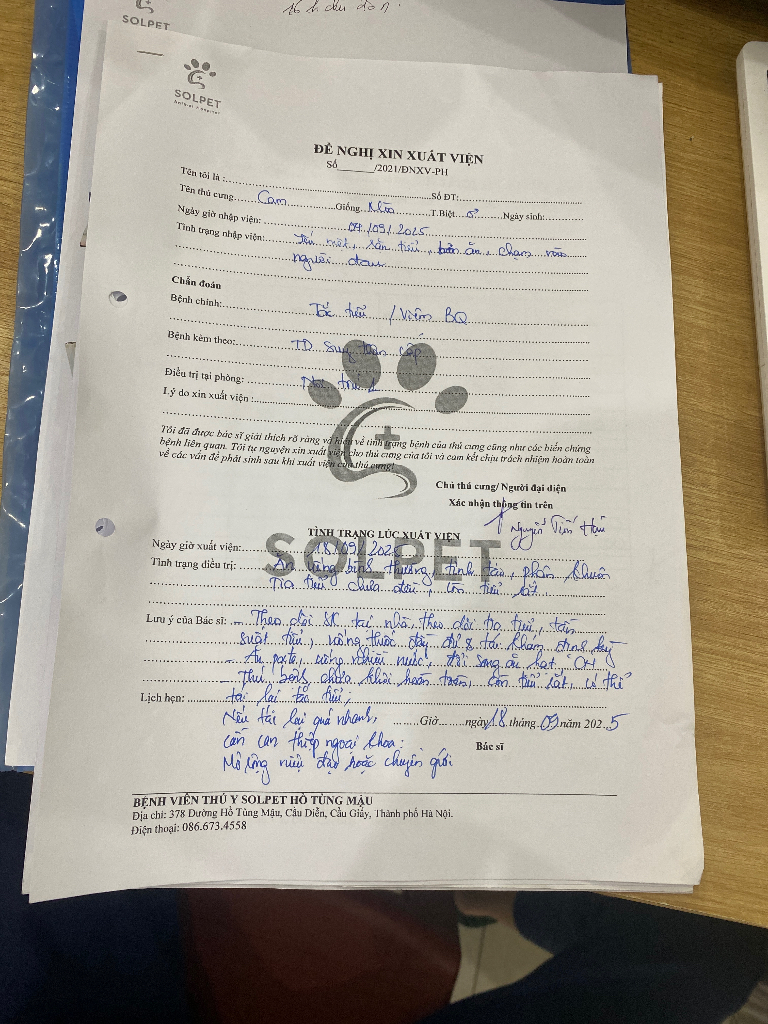 16 h
SOLPET
SOLPET
ĐỀ NGHỊ XIN XUẤT VIỆN
Số______/2021/ĐNXV-PH
Tên tôi là : Số ĐT:
Tên thú cưng: Cam Giống T.Biệt ♂ Ngày sinh:
Ngày giờ nhập viện: 09/2025
Tình trạng nhập viện: bỏ ăn, chạm vào
người đau
Chẩn đoán
Bệnh chính: Tắc tiểu / Viêm BQ
Bệnh kèm theo: TD Suy thận cấp
Điều trị tại phòng:
Lý do xin xuất viện :
Tôi đã được bác sĩ giải thích rõ ràng và hiểu về tình trạng bệnh của thú cưng cũng như các biến chứng
bệnh liên quan. Tôi tự nguyện xin xuất viện cho thú cưng của tôi và cam kết chịu trách nhiệm hoàn toàn
về các vấn đề phát sinh sau khi xuất viện của thú cưng!
Chủ thú cưng/ Người đại diện
Xác nhận thông tin trên
Nguyễn Tiến
TÌNH TRẠNG LÚC XUẤT VIỆN
SOLPET
Ngày giờ xuất viện: 18/09/202
Tình trạng điều trị : Ăn uống bình thường, tỉnh táo, phân khuôn
Tia tiểu chưa đều, còn tiểu rắt
Lưu ý của Bác sĩ: - Theo dõi SK tại nhà, theo dõi tia tiểu, tần
suất tiểu, uống thuốc đầy đủ & tái khám định kỳ
- Ăn pate, uống nhiều nước, đổi sang ăn hạt
- Thú bệnh chưa khỏi hoàn toàn, còn tiểu rắt, có thể
Lịch hẹn: tái lại tắc tiểu,
Nếu tái lại quá nhanh, Giờ ngày 18 tháng 09 năm 2025
cần can thiệp ngoại khoa: Bác sĩ
Mở rộng niệu đạo hoặc chuyển giới
BỆNH VIỆN THÚ Y SOLPET HỒ TÙNG MẬU
Địa chỉ: 378 Đường Hồ Tùng Mậu, Cầu Diễn, Cầu Giấy, Thành phố Hà Nội.
Điện thoại: 086.673.4558